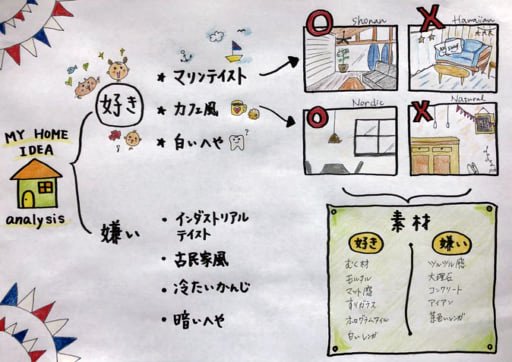 MY HOME
IDEA
analysis
好き
★ マリンテイスト
★ カフェ風
★ 白いへや
?
嫌い
・インダストリアル
テイスト
・古民家風
・冷たいかんじ
・暗いへや
Shonan
Hawaiian
Nordic
Natural
素材
好き
むく材
モルタル
マット感
すりガラス
ホログラムタイル
白いレンガ
嫌い
ツルツル感
大理石
コンクリート
アイアン
茶色いレンガ